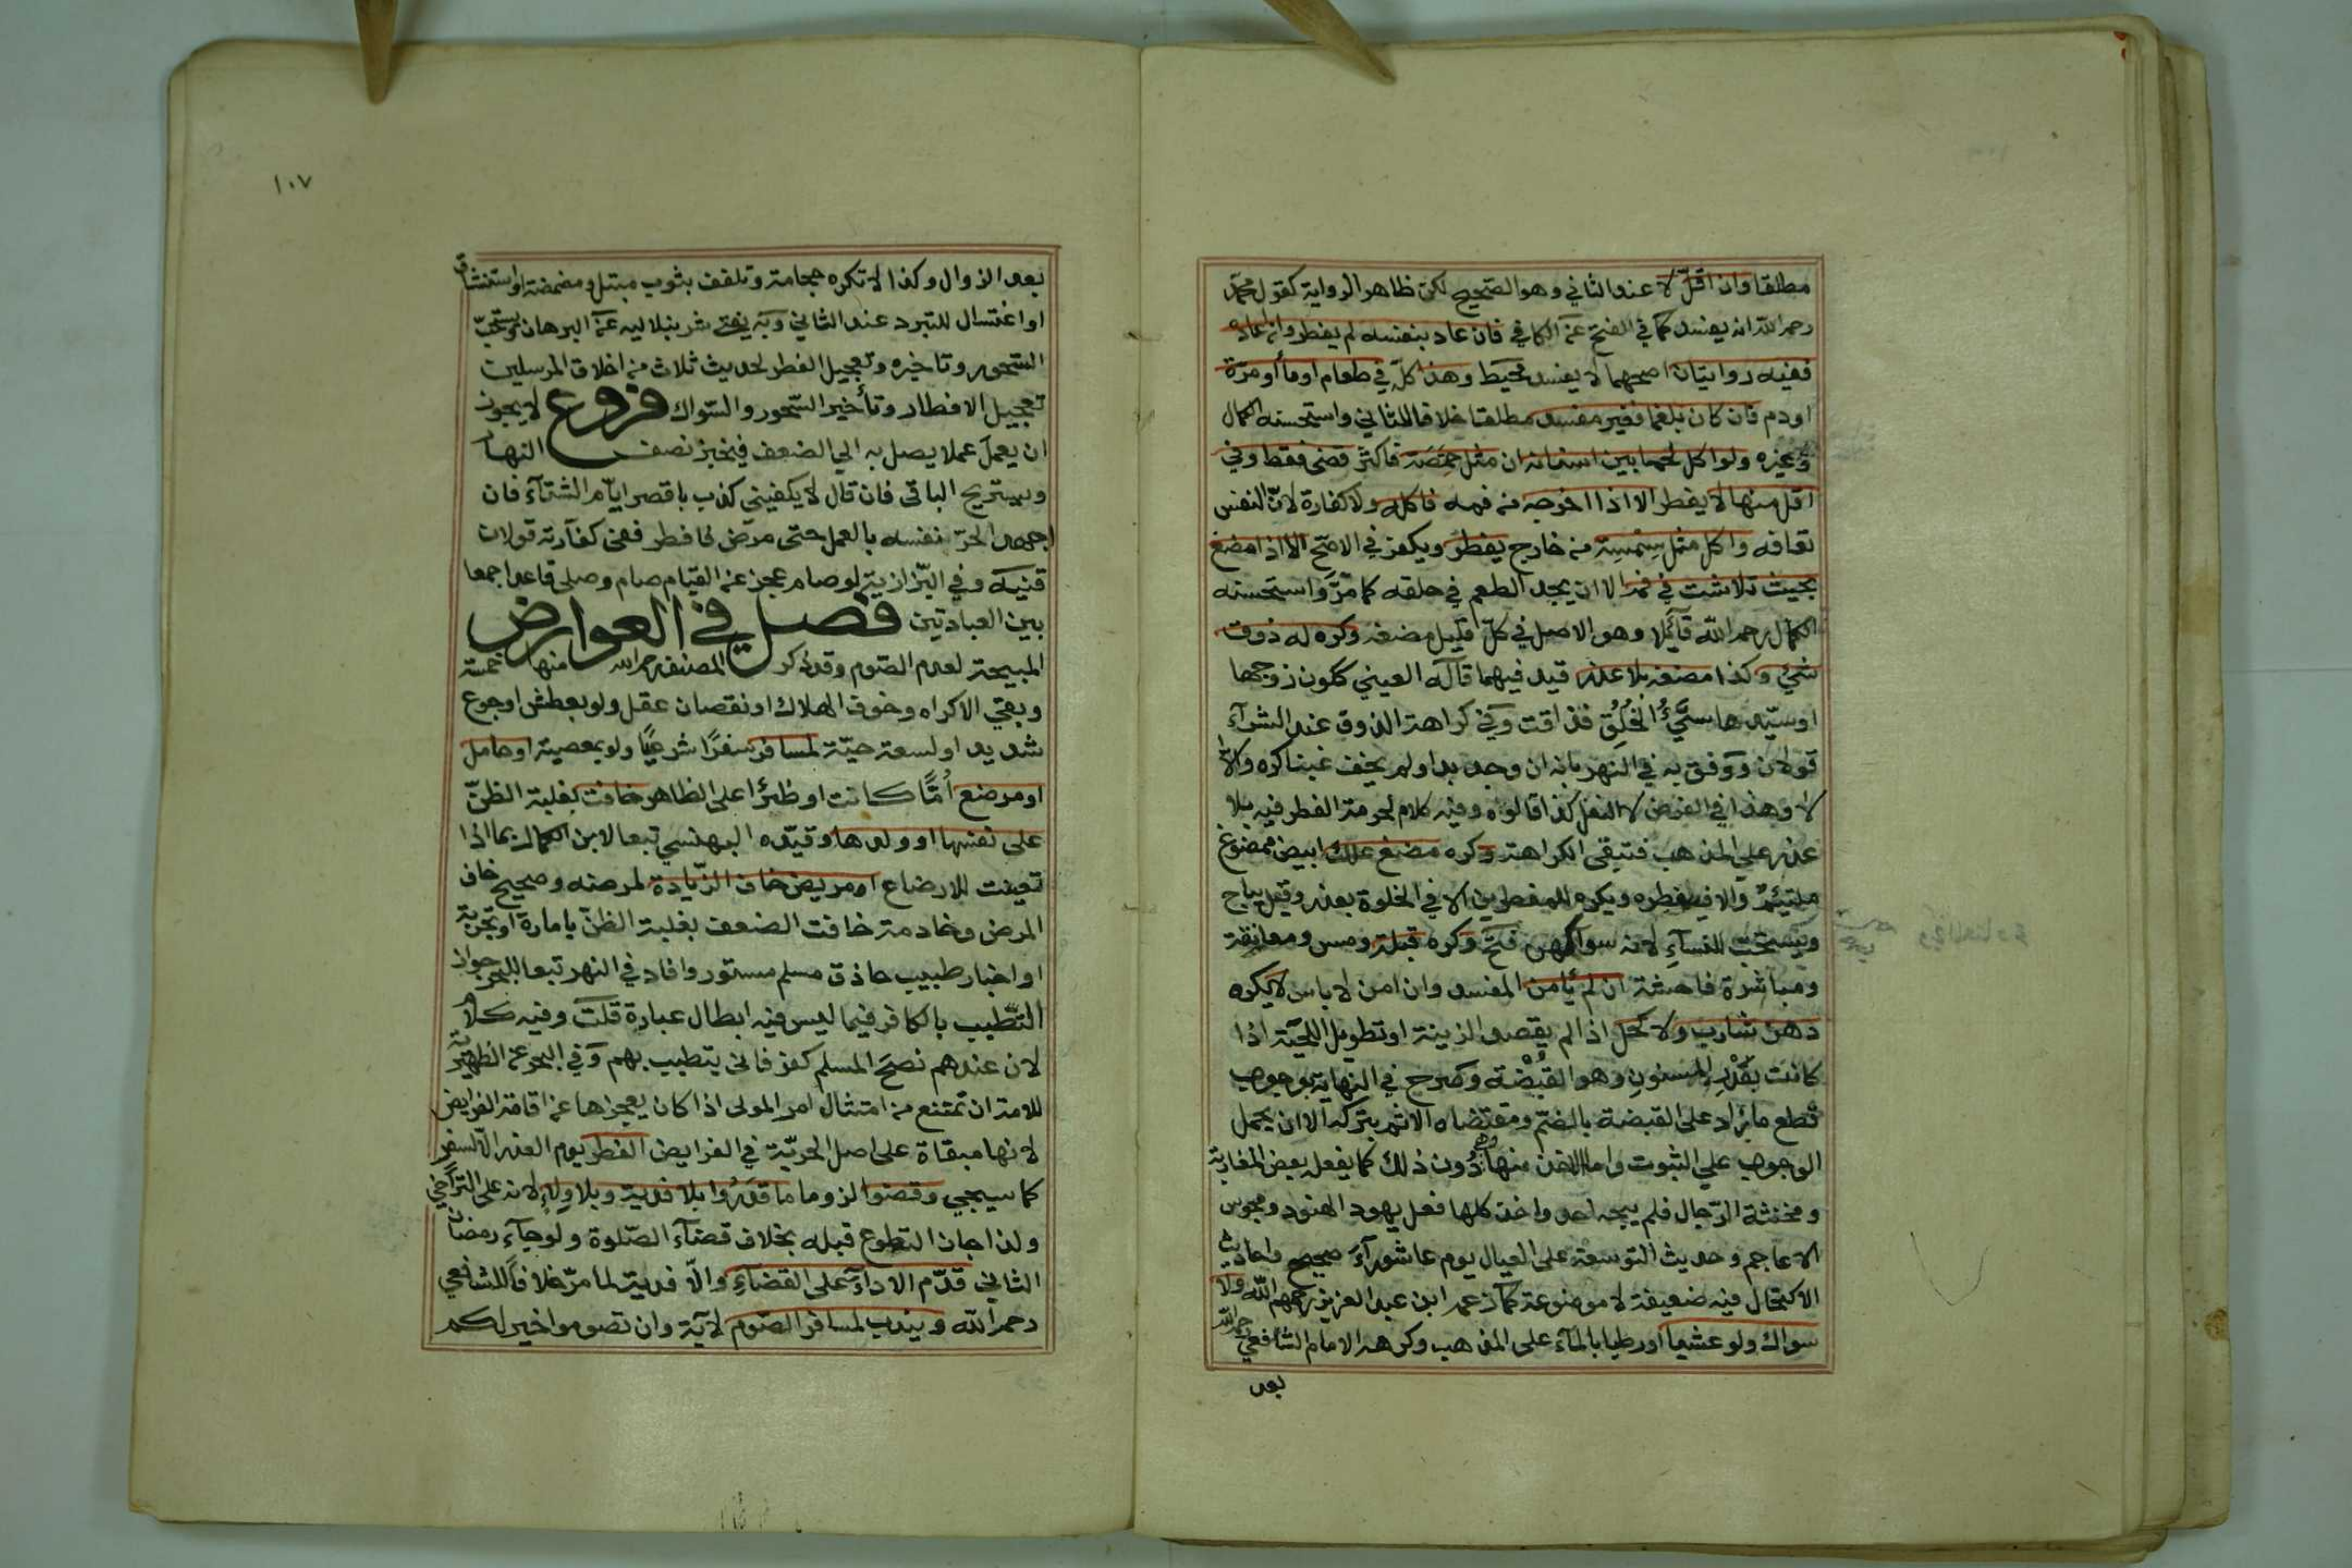 مطلقا وان اقل لا عند الثاني وهو الصحيح لكن ظاهر الرواية كقول محمد
رحمه الله انه يفسد كما في الفتح عن الكافي فان عاد بنفسه لم يفطر وان اعاده
ففيه روايتان اصحهما لا يفسد محيط وهذا كله في طعام او ماء او مرة
او دم فان كان بلغما فغير مفسد مطلقا خلافا للثاني واستحسنه الكمال
وغيره ولو اكل لحما بين اسنانه ان مثل حمصة فاكثر قضى فقط وفي
اقل منها لا يفطر الا اذا اخرجه من فمه فاكله ولا كفارة لان النفس
تعافه واكل مثل سمسة من خارج يفطر ويكفر في الاصح الا اذا مضغ
بحيث تلاشت في فمه الا ان يجد الطعم في حلقه كما مر واستحسنه
الكمال رحمه الله قائلا وهو الاصل في كل قليل مضغه وكره له ذوق
شيء وكذا مضغه بلا عذر قيد فيهما قاله العيني ككون زوجها
او سيدها سيّءُ الخُلُقِ فذاقت وفي كراهة الذوق عند الشرآء
قولان ووفق به في النهر بانه ان وجد بدا ولم يخف غبنا كره والا
لا وهذا في الفرض لا النفل كذا قالوه وفيه كلام لحرمة الفطر فيه بلا
عذر على المذهب فتبقى الكراهة وكره مضغ علك ابيض ممضوغ
ملتئم والا فيفطره ويكره للمفطرين الا في الخلوة بعذر وقيل يباح
ويستحب للنسآء لانه سواكهن فتح وكره قبلة ومس ومعانقة
ومباشرة فاحشة ان لم يأمن المفسد وان امن لا باس لا يكره
دهن شارب ولا كحل اذا لم يقصد الزينة او تطويل اللحية اذا
كانت بقدر المسنون وهو القبضة وصرح في النهاية بوجوب
قطع ما زاد على القبضة بالضم ومقتضاه الاثم بتركه الا ان يحمل
الوجوب على الثبوت واما الاخذ منها وهي دون ذلك كما يفعله بعض المغاربة
ومخنثة الرجال فلم يبحه احد واخذ كلها فعل يهود الهنود ومجوس
الاعاجم وحديث التوسعة على العيال يوم عاشورآء صحيح واحاديث
الاكتحال فيه ضعيفة لا موضوعة كما زعمه ابن عبد العزيز رحمهم الله ولا
سواك ولو عشيا او رطبا بالمآء على المذهب وكرهه الامام الشافعي رحمه الله
بعد
١٠٧
بعد الزوال وكذا لا تكره حجامة وتلفف بثوب مبتل ومضمضة او استنشاق
او اغتسال للتبرد عند الثاني وبه يفتى شرنبلاليه عن البرهان ويستحب
السحور وتاخيره وتعجيل الفطر لحديث ثلاث من اخلاق المرسلين
تعجيل الافطار وتأخير السحور والسواك فروع لا يجوز
ان يعمل عملا يصل به الى الضعف فيخبز نصف النهار
ويستريح الباقي فان قال لا يكفيني كذب باقصر ايام الشتآء فان
اجهد الحر نفسه بالعمل حتى مرض فافطر ففي كفارته قولان
قنية وفي البزازية لو صام عجز عن القيام صام وصلى قاعدا جمعا
بين العبادتين فصل في العوارض
المبيحة لعدم الصوم وقد ذكر المصنف رحمه الله منها خمسة
وبقي الاكراه وخوف الهلاك او نقصان عقل ولو بعطش او جوع
شديد او لسعة حية لمسافر سفرًا شرعيًا ولو بمعصية او حامل
او مرضع أمًّا كانت او ظئرا على الظاهر خافت بغلبة الظن
على نفسها او ولدها وقيده البهنسي تبعا لابن الكمال بما اذا
تعينت للارضاع او مريض خاف الزيادة لمرضه وصحيح خاف
المرض وخادمة خافت الضعف بغلبة الظن بامارة او تجربة
او اخبار طبيب حاذق مسلم مستور وافاد في النهر تبعا للبحر جواز
التطبيب بالكافر فيما ليس فيه ابطال عبادة قلت وفيه كلام
لان عندهم نصح المسلم كفر فانى يتطبب بهم وفي البحر عن الظهيرية
للامة ان تمتنع من امتثال امر المولى اذا كان يعجزها عن اقامة الفرايض
لانها مبقاة على اصل الحرية في الفرايض الفطر يوم العذر الا السفر
كما سيجيء وقضوا لزوما ما قدروا بلا فدية وبلا ولاء لانه على التراخي
ولذا جاز التطوع قبله بخلاف قضآء الصلوة ولو جآء رمضان
الثاني قدم الادآء على القضآء والا فدية لما مر خلافا للشافعي
رحمه الله ويندب لمسافر الصوم لآية وان تصوموا خير لكم